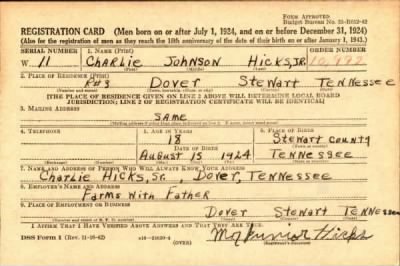 Form Approved
Budget Bureau No. 33-R012-42
REGISTRATION CARD (Men born on or after July 1, 1924, and on or before December 31, 1924)
(Also for the registration of men as they reach the 18th anniversary of the date of their birth on or after January 1, 1943.)
SERIAL NUMBER 1. NAME (Print) ORDER NUMBER
W 11 CHARLIE JOHNSON HICKS, JR. 10,992
(First) (Middle) (Last)
2. PLACE OF RESIDENCE (Print)
R#3 DOVER STEWART TENNESSEE
(Number and street) (Town, township, village, or city) (County) (State)
[THE PLACE OF RESIDENCE GIVEN ON LINE 2 ABOVE WILL DETERMINE LOCAL BOARD
JURISDICTION; LINE 2 OF REGISTRATION CERTIFICATE WILL BE IDENTICAL]
3. MAILING ADDRESS
SAME
[Mailing address if other than place indicated on line 2. If same, insert word same]
4. TELEPHONE 5. AGE IN YEARS 6. PLACE OF BIRTH
18 STEWART COUNTY
DATE OF BIRTH (Town or county)
AUGUST 15 1924 TENNESSEE
(Exchange) (Number) (Mo.) (Day) (Yr.) (State or country)
7. NAME AND ADDRESS OF PERSON WHO WILL ALWAYS KNOW YOUR ADDRESS
CHARLIE HICKS, SR., DOVER, TENNESSEE
8. EMPLOYER'S NAME AND ADDRESS
FARMS WITH FATHER
9. PLACE OF EMPLOYMENT OR BUSINESS
DOVER STEWART TENNESSEE
(Number and street or R. F. D. number) (Town) (County) (State)
I AFFIRM THAT I HAVE VERIFIED ABOVE ANSWERS AND THAT THEY ARE TRUE.
DSS Form 1 (Rev. 11-16-42) (OVER) Junior Hicks
(Registrant's signature)